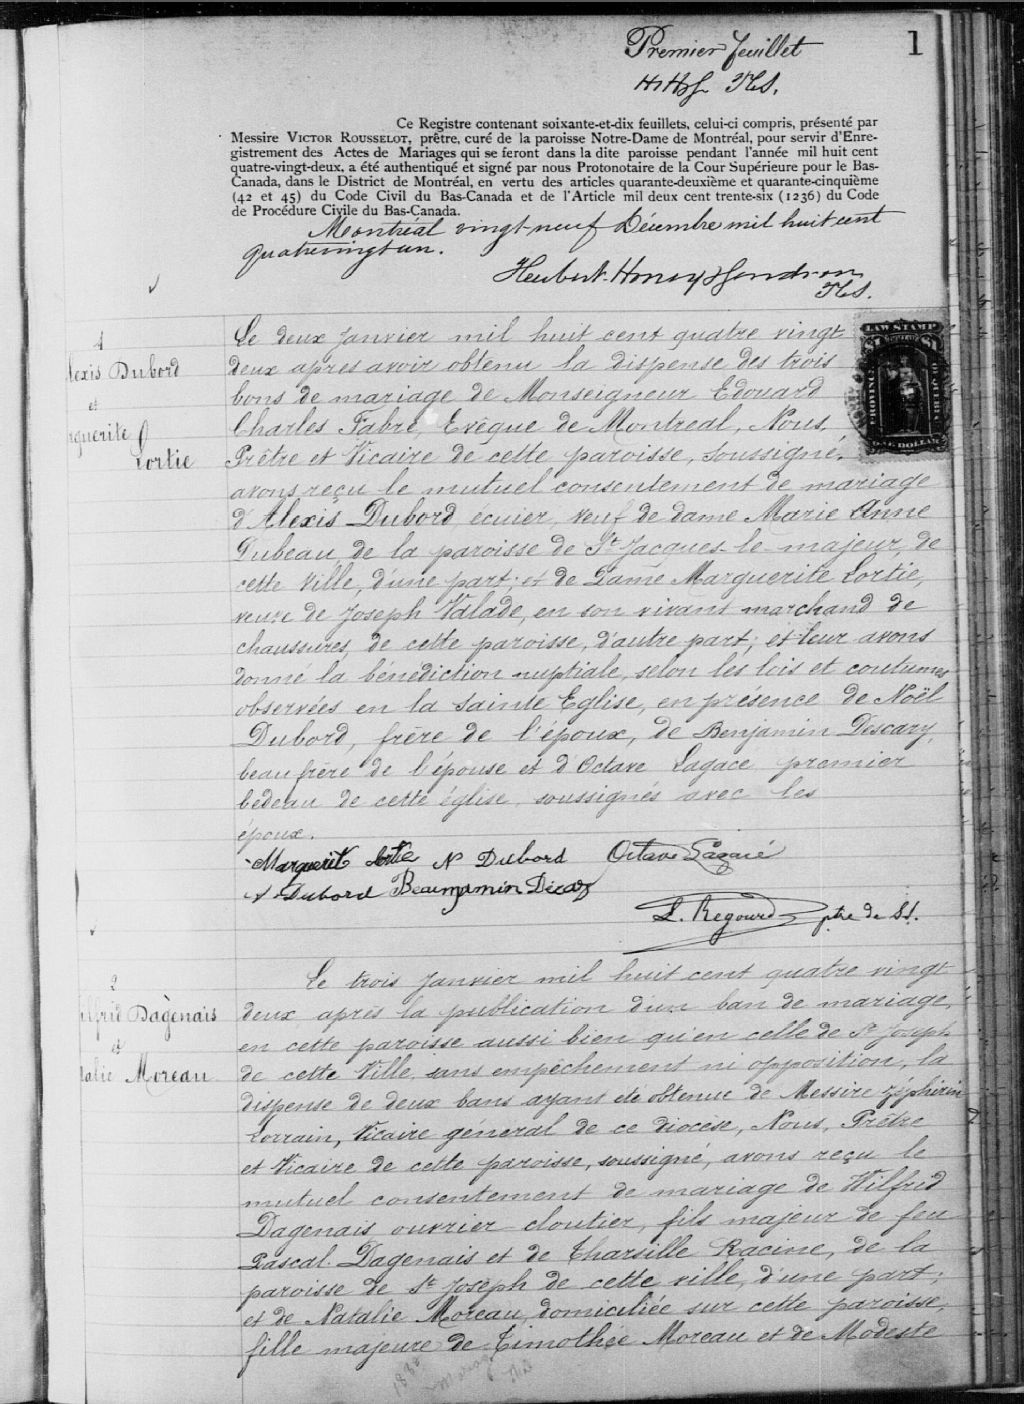 Premier feuillet
1
HHG Pts.
Ce Registre contenant soixante-et-dix feuillets, celui-ci compris, présenté par
Messire VICTOR ROUSSELOT, prêtre, curé de la paroisse Notre-Dame de Montréal, pour servir d'Enre-
gistrement des Actes de Mariages qui se feront dans la dite paroisse pendant l'année mil huit cent
quatre-vingt-deux, a été authentiqué et signé par nous Protonotaire de la Cour Supérieure pour le Bas-
Canada, dans le District de Montréal, en vertu des articles quarante-deuxième et quarante-cinquième
(42 et 45) du Code Civil du Bas-Canada et de l'Article mil deux cent trente-six (1236) du Code
de Procédure Civile du Bas-Canada.
Montréal vingt-neuf Décembre mil huit cent
quatrevingt un.
Hubert Honey Gendron
Pts.
1
lexis Dubord
et
guerite
Lortie
LAW STAMP
PROVINCE
ONE DOLLAR
Le deux Janvier mil huit cent quatre vingt
deux après avoir obtenu la dispense des trois
bans de mariage de Monseigneur Edouard
Charles Fabre, Evêque de Montreal, Nous,
Prêtre et Vicaire de cette paroisse, soussigné,
avons reçu le mutuel consentement de mariage
d'Alexis Dubord écuier, veuf de dame Marie Anne
Dubeau, de la paroisse de St Jacques-le-majeur, de
cette Ville, d'une part; et de Dame Marguerite Lortie,
veuve de Joseph Valade, en son vivant marchand de
chaussures, de cette paroisse, d'autre part; et leur avons
donné la bénédiction nuptiale, selon les lois et coutumes
observées en la Sainte Eglise, en présence de Noël
Dubord, frère de l'époux, de Benjamin Descary,
beau frère de l'épouse et d'Octave Lagacé premier
bedeau de cette église, soussignés avec les
époux.
Marguerit Lortie N Dubord Octave Lagacé
A Dubord Beaumjamin Décary
L. Regourd ptre de S.S.
2
lfrid Dagènais
et
talie Moreau
Le trois Janvier mil huit cent quatre vingt
deux après la publication d'un ban de mariage,
en cette paroisse aussi bien qu'en celle de St Joseph
de cette Ville, sans empêchement ni opposition, la
dispense de deux bans ayant été obtenue de Messire Zéphirin
Lorrain, Vicaire géneral de ce diocèse, Nous, Prêtre
et Vicaire de cette paroisse, soussigné, avons reçu le
mutuel consentement de mariage de Wilfrid
Dagenais, ouvrier cloutier, fils majeur de feu
Pascal Dagenais et de Tharsille Racine, de la
paroisse de St Joseph de cette ville, d'une part;
et de Natalie Moreau, domiciliée sur cette paroisse,
fille majeure de Timothée Moreau et de Modeste